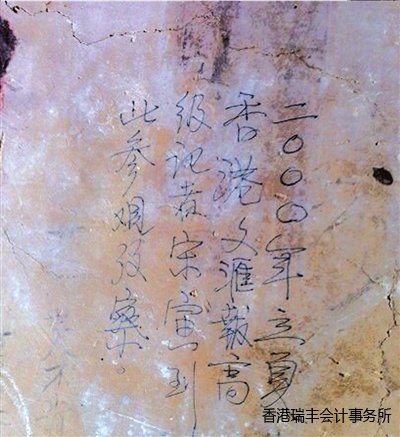 二〇〇〇年立夏
香港文滙報高
级记者宋到
此参观攷察。
香港瑞丰会计事务所